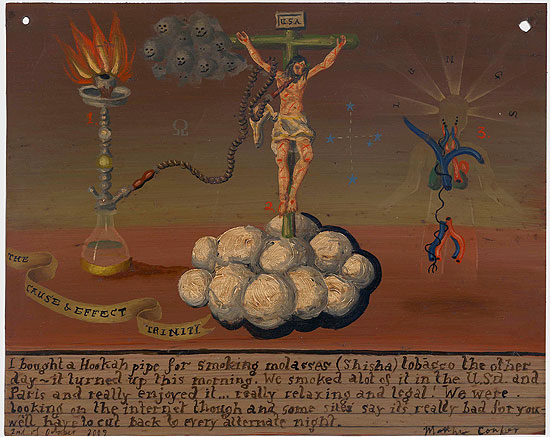 U.S.A.
L U N G S
Ω
1.
2.
3.
THE
CAUSE & EFFECT
TRINITY
I bought a Hookah pipe for smoking molasses (Shisha) tobacco the other
day – it turned up this morning. We smoked alot of it in the U.S.A. and
Paris and really enjoyed it... really relaxing and legal! We were
looking on the internet though and some sites say its really bad for you –
well have to cut back to every alternate night.
of October 2009